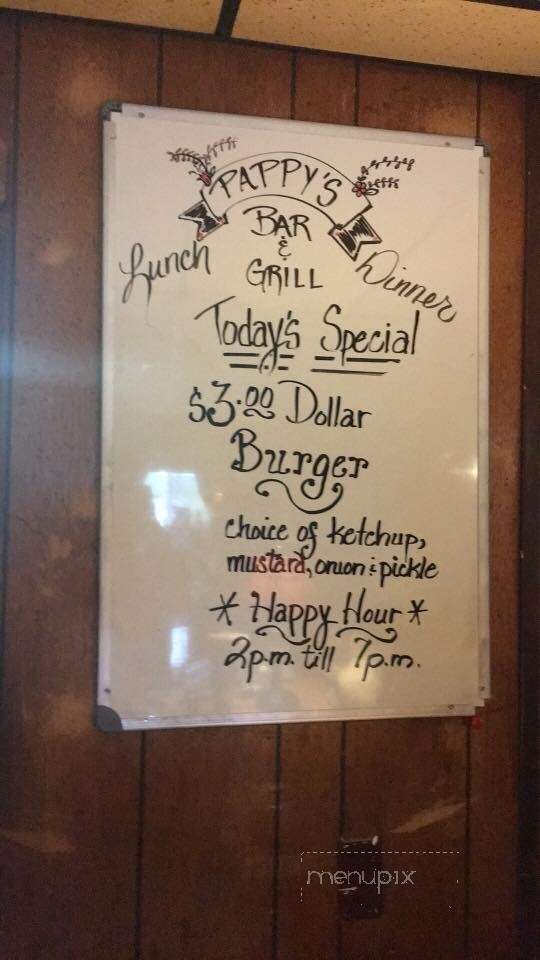 PAPPY'S
BAR
&
GRILL
Lunch
Dinner
Today's Special
$3.00 Dollar
Burger
choice of ketchup,
mustard, onion & pickle
* Happy Hour *
2p.m. till 7p.m.
menupix